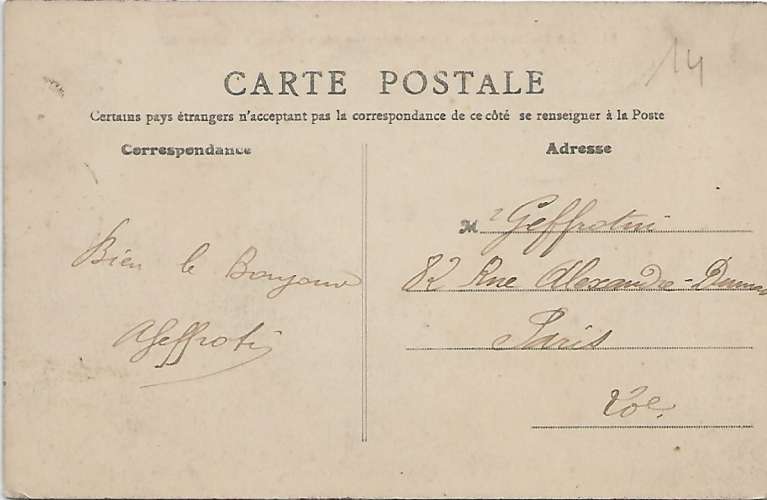 14
CARTE POSTALE
Certains pays étrangers n'acceptant pas la correspondance de ce côté se renseigner à la Poste
Correspondance
Adresse
Bien le Bonjour
M r Geffrotin
82 Rue Alexandre-Dumas
Paris